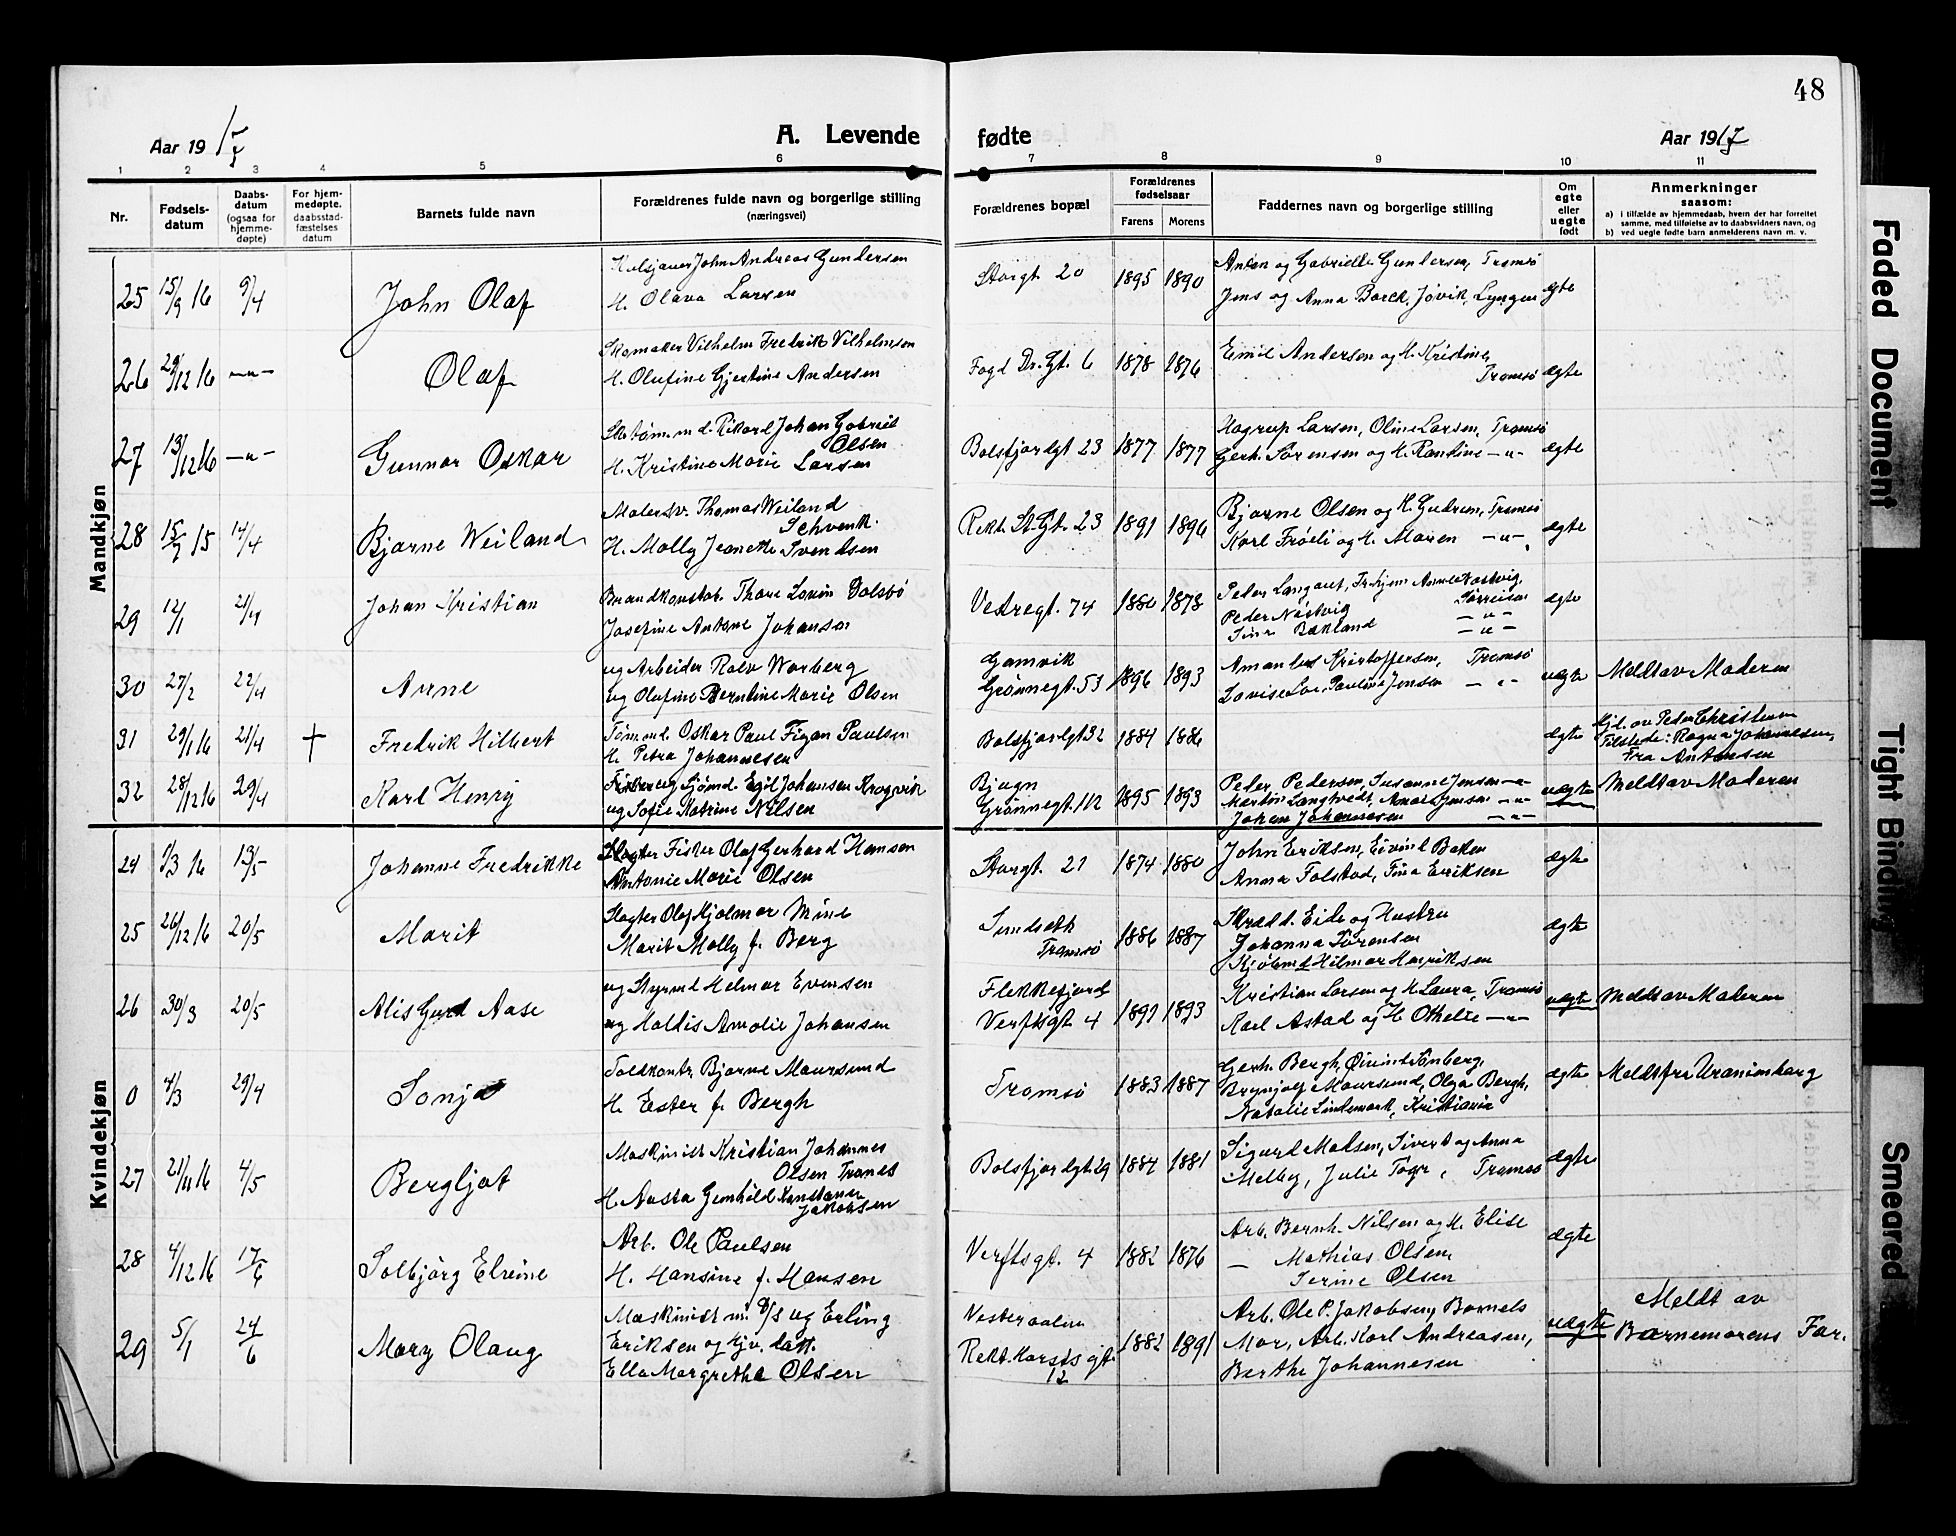 48
Aar 19 17
A. Levende fødte
Aar 1917
1 2 3 4 5 6 7 8 9 10 11
Nr.
Fødsels-
datum
Daabs-
datum
(ogsaa for
hjemme-
døpte)
For hjem-
medøpte.
daabsstad-
fæstelses
datum
Barnets fulde navn
Forældrenes fulde navn og borgerlige stilling
(næringsvei)
Forældrenes bopæl
Forældrenes
fødselsaar
Farens Morens
Faddernes navn og borgerlige stilling
Om
egte
eller
uegte
født
Anmerkninger
saasom:
a) i tilfælde av hjemmedaab, hvem der har forrettet
samme, med tilføielse av to daabsvidners navn, og
b) ved uegte fødte barn anmelderens navn m. v.
Mandkjøn
25 15/9 16 9/4 John Olaf
Kulsjauer John Andreas Gundersen
H. Olava Larsen
Storgt 20 1895 1890
Anton og Gabrielle Gundersen, Tromsø
Jens og Anna Borck, Jøvik, Lyngen
ægte
26 29/12 16 —"— Olaf
Skomaker Vilhelm Fredrik Vilhelmsen
H. Olufine Gjertine Andersen
Fogd Dr. Gt. 6 1878 1876
Emil Andersen og H. Kristine,
Tromsø
ægte
27 13/12 16 —"— Gunnar Oskar
Rikard Johan Gabriel
Olsen
H. Kristine Marie Larsen
Balsfjordgt 23 1877 1877
Hagrup Larsen, Oline Larsen, Tromsø
Gerh. Sørensen og H. Randine —"—
ægte
28 15/7 15 14/4 Bjarne Weiland
Malersv. Thomas Weiland
Schvenk.
H. Molly Jeanette Svendsen
Rekt. St. Gt. 23 1891 1896
Bjarne Olsen og H. Gudrun, Tromsø
Karl Frøeli og H. Maren —"—
ægte
29 12/1 21/4 Johan Kristian
Brandkonstab. Thore Lovin Dalsbø
Josefine Antone Johanson
Vestregt. 74 1880 1878
Peder Langaret,
Sørreisen
Peder Nestvig —"—
Bakland —"—
ægte
30 27/2 22/4 Arne
ug Arbeider Rolv Warberg
ug Olufine Berntine Marie Olsen
Gamvik
Grønnegt. 53 1896 1893
Amandus Kristoffersen, Tromsø
Lovise Pauline Jensen —"—
uægte Meldt av Moderen
31 29/1 16 21/4 † Fredrik Hilbert
Tømmerm. Oskar Paul Paulsen
H. Petra Johannesen
Balsfjordgt 32 1884 1886
ægte
Hjd. av Peder Christensen
Tilstede: Ragna Johannesen,
Fra Antonsen
32 28/12 16 29/4 Karl Henry
Fisker ug Sjømd. Egil Johansen Krogvik
ug Sofie Katrine Nilsen
Bjugn
Grønnegt. 112 1895 1893
Peder Pedersen, Susanne Jensen —"—
Martin Langtvedt, Jensen —"—
Johan Johannesen —"—
uægte Meldt av Moderen
Kvindekjøn
24 1/3 16 13/5 Johanne Fredrikke
Fisker Olaf Gerhard Hansen
Antonie Marie Olsen
Storgt. 21 1874 1880
John Eriksen, Eivind Bakken
Anna Folstad, Tina Eriksen
ægte
25 26/12 16 20/5 Marit
Slagter Olaf Hjalmar Mine
Marit Molly f. Berg
Sundseth
Tromsø 1886 1887
Skrædd. Eide og Hustru
Johanna Sørensen
Kjøbmd Hilmar Henriksen
ægte
26 30/3 20/5 Alis Gurd Aase
ug Styrmd Helmer Evensen
ug Haldis Amalie Johansen
Flekkefjord
Verftsgt 4 1892 1893
Kristian Larsen og H Laura, Tromsø
Karl Astad og H Othelie —"—
uægte Meldt av Moderen
0 4/3 29/4 Sonja
Toldkontr. Bjarne Maursund
H. Ester f. Bergh
Tromsø 1883 1887
Gerh. Bergh, Øivind Sønberg,
Brynjolf Maursund, Olga Bergh,
Natalie Lindemark, Kristiania
ægte Meldt fra Uranienborg
27 21/11 16 4/5 Bergljot
Maskinist Kristian Johannes
Olsen Tranes
H. Aasta Gunhild Konstanse
Jakobsen
Balsfjordgt 29 1884 1881
Sigurd Madsen, Sivert og Anna
Melby, Julie Fogr, Tromsø
ægte
28 4/12 16 17/6 Solbjørg Elreine
Arb. Ole Paulsen
H. Hansine f. Hansen
Verftsgt. 4 1882 1876
Arb. Bernh. Nilsen og H. Elise
— Mathias Olsen
Serine Olsen
ægte
29 5/1 24/6 Mary Olaug
Maskinist m. D/S ug Erling
Eriksen og Gjv. datt.
Ella Margrethe Olsen
Vesteraalen
Rekt. Horsts gt.
12 1882 1891
Arb. Ole P. Jakobsen, Barnets
Mor, Arb. Karl Andreasen,
Berthe Johannesen
uægte
Meldt av
Barnemorens Far.
Faded Document
Tight Binding
Smeared